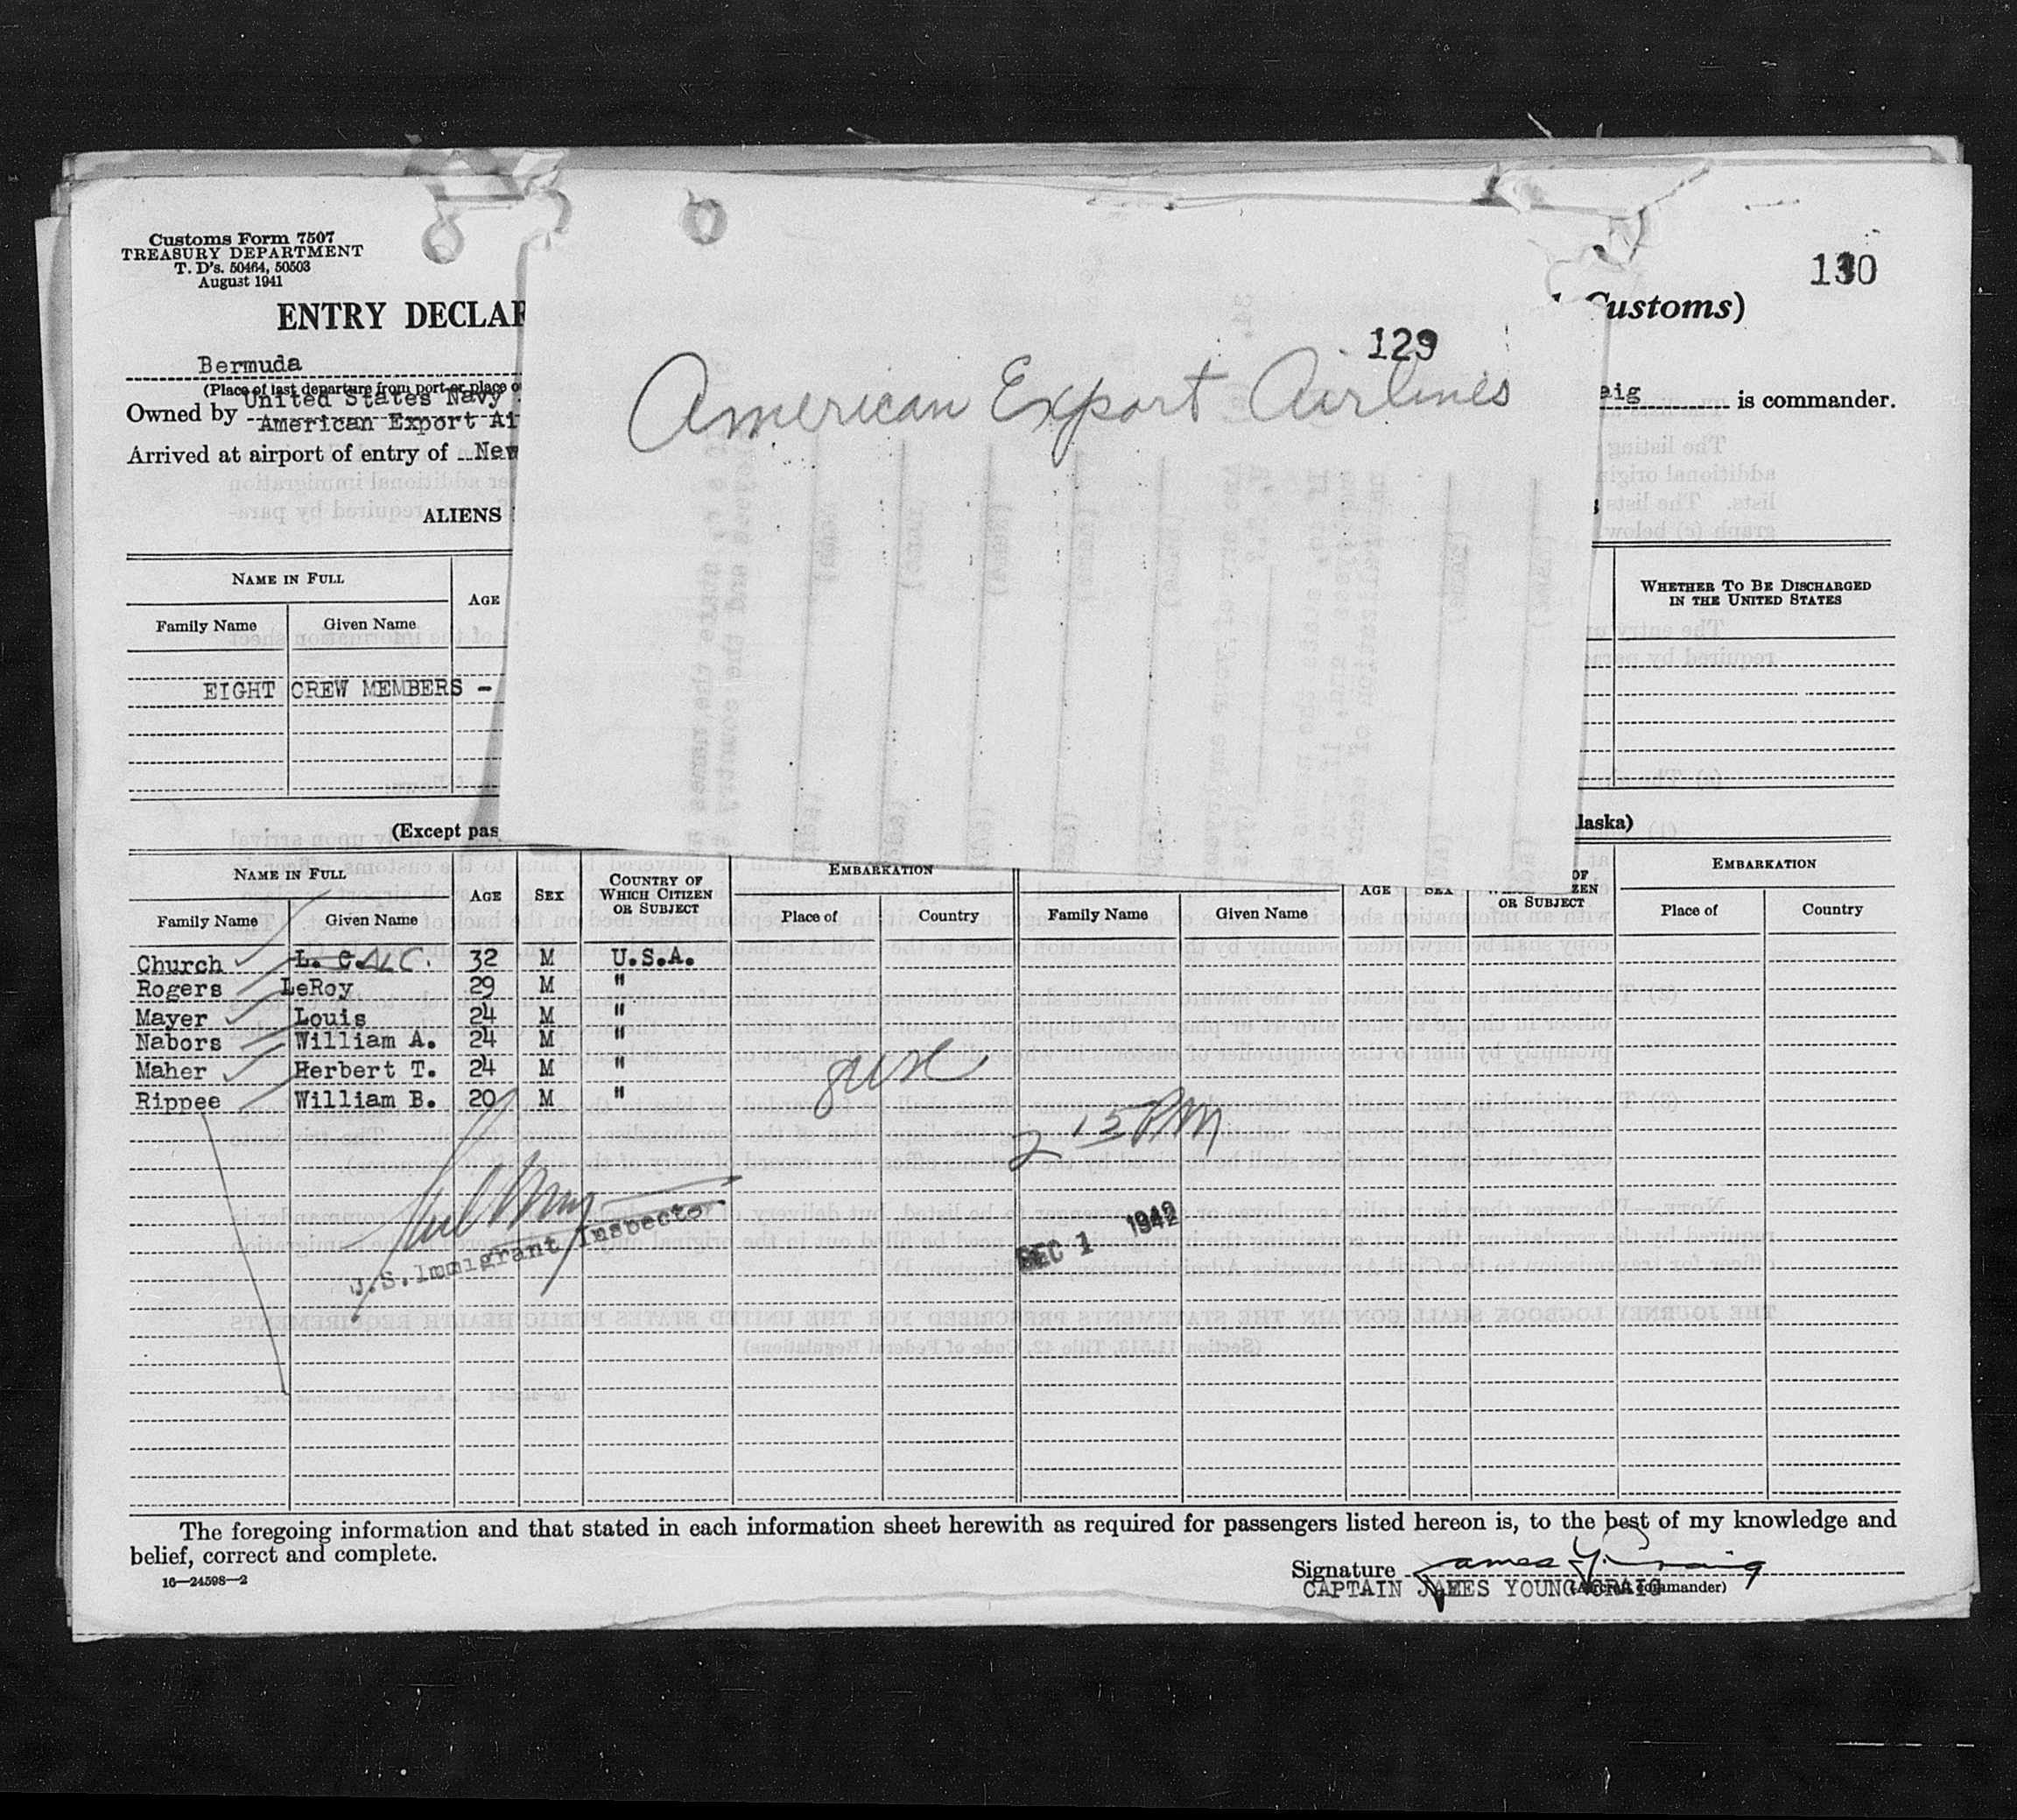 Customs Form 7507
TREASURY DEPARTMENT
T. D's. 50464, 50503
August 1941
130
ENTRY DECLAR
Customs)
129
American Export Airlines
Bermuda
(Place of last departure from port or place o
United States Navy
Owned by
American Export Ai
eig is commander.
Arrived at airport of entry of New
ALIENS
NAME IN FULL
AGE
WHETHER TO BE DISCHARGED
IN THE UNITED STATES
Family Name Given Name
EIGHT CREW MEMBERS -
(Except pas
laska)
NAME IN FULL AGE SEX COUNTRY OF WHICH CITIZEN OR SUBJECT EMBARKATION
Family Name Given Name Place of Country
AGE SEX OR SUBJECT EMBARKATION
Family Name Given Name Place of Country
Church L. C. ALC. 32 M U.S.A.
Rogers LeRoy 29 M "
Mayer Louis 24 M "
Nabors William A. 24 M "
Maher Herbert T. 24 M "
Rippee William B. 20 M "
2 15 PM
U.S. Immigrant Inspector
DEC 1 1942
The foregoing information and that stated in each information sheet herewith as required for passengers listed hereon is, to the best of my knowledge and
belief, correct and complete.
16—24598—2
Signature James Y. Craig
CAPTAIN JAMES YOUNG CRAIG
(Aircraft commander)